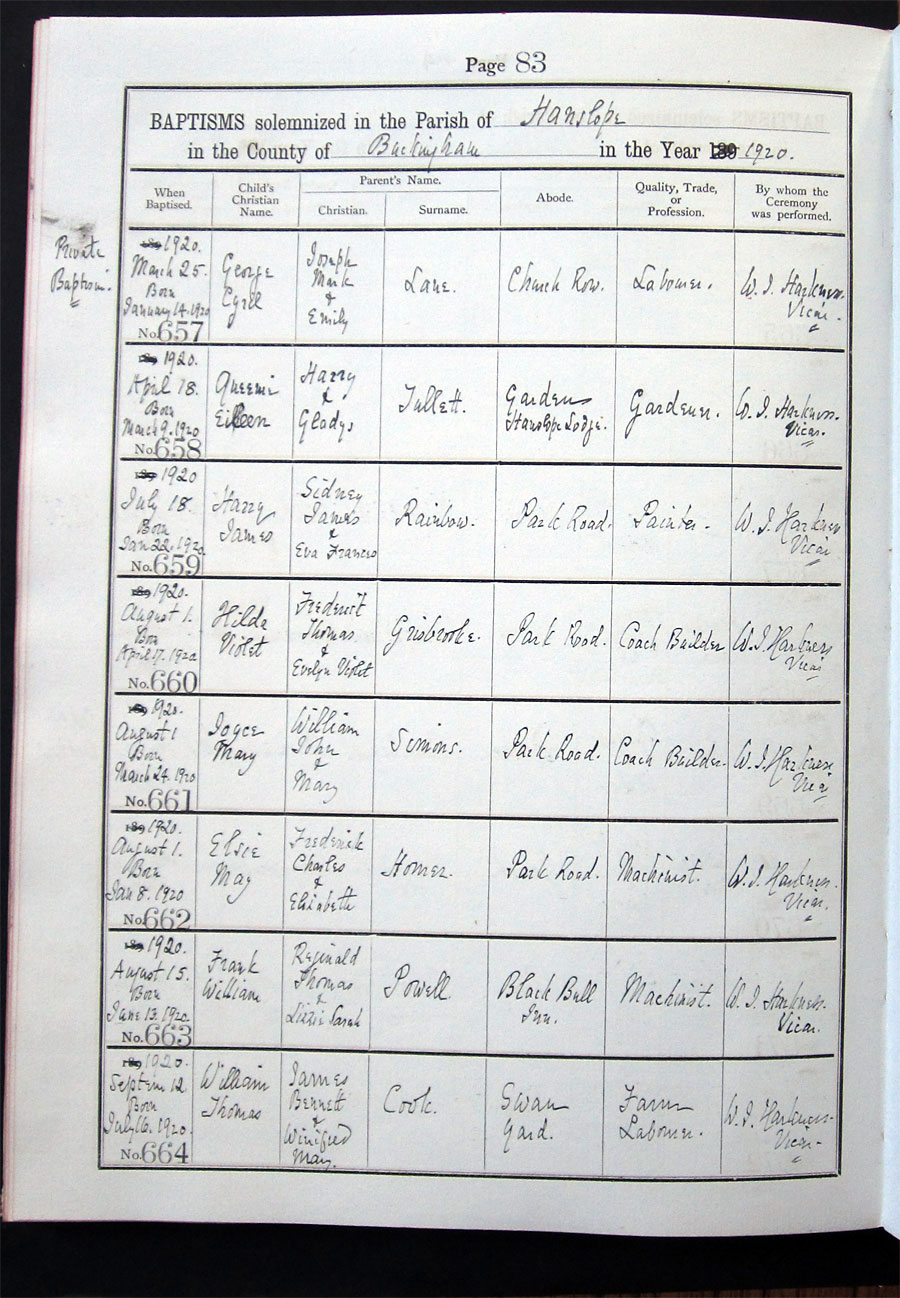 Page 83
BAPTISMS solemnized in the Parish of Hanslope
in the County of Buckingham in the Year 189 1920.
When Baptised.
Child's Christian Name.
Parent's Name.
Christian.
Surname.
Abode.
Quality, Trade, or Profession.
By whom the Ceremony was performed.
Private
Baptism.
189 1920.
March 25.
Born
January 14. 1920
No. 657
George
Cyril
Joseph
Mark
&
Emily
Lane.
Church Row.
Labourer.
W. J. Harkness.
Vicar.
189 1920.
April 18.
Born
March 9. 1920
No. 658
Queenie
Eileen
Harry
&
Gladys
Tullett.
Gardens
Hanslope Lodge.
Gardener.
W. J. Harkness.
Vicar.
189 1920
July 18.
Born
Jan 22. 1920.
No. 659
Harry
James
Sidney
James
&
Eva Frances
Rainbow.
Park Road.
Painter.
W. J. Harkness
Vicar
189 1920.
August 1.
Born
April 17. 1920
No. 660
Hilda
Violet
Frederick
Thomas
&
Evelyn Violet
Grisbrooke.
Park Road.
Coach Builder
W. J. Harkness
Vicar
189 1920.
August 1
Born
March 24. 1920
No. 661
Joyce
Mary
William
John
&
Mary
Simons.
Park Road.
Coach Builder.
W. J. Harkness
Vicar
189 1920.
August 1.
Born
Jan 8. 1920
No. 662
Elsie
May
Frederick
Charles
&
Elizabeth
Homer.
Park Road.
Machinist.
W. J. Harkness.
Vicar.
189 1920.
August 15.
Born
June 13. 1920.
No. 663
Frank
William
Reginald
Thomas
&
Lizzie Sarah
Powell
Black Bull
Inn.
Machinist.
W. J. Harkness.
Vicar.
189 1920.
Septem 12.
Born
July 16. 1920.
No. 664
William
Thomas
James
Bennett
&
Winifred
May.
Cook.
Swan
Yard.
Farm
Labourer.
W. J. Harkness.
Vicar.